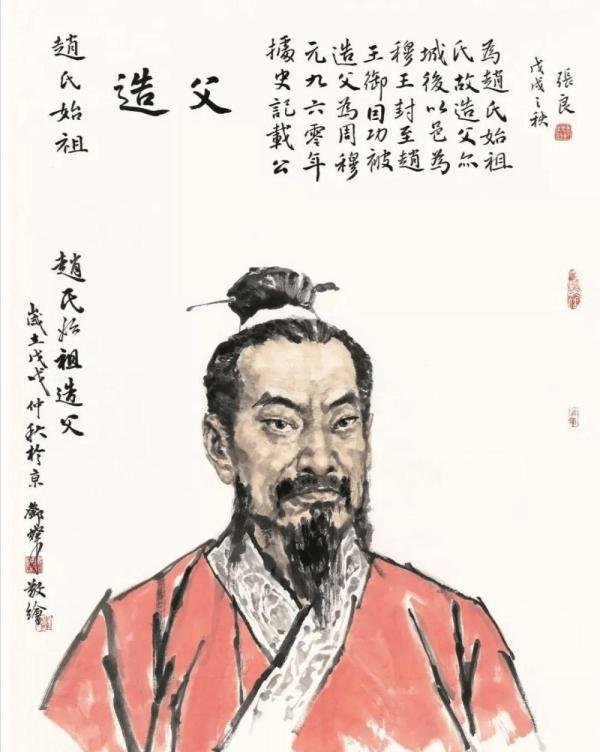 趙氏始祖
造父
據史記載公
元九六零年
造父為周穆
王御因功被
穆王封至趙
城後以邑為
氏故造父亦
為趙氏始祖
戊戌之秋
張良
趙氏始祖造父
歲在戊戌仲秋於京 鄧 敬繪